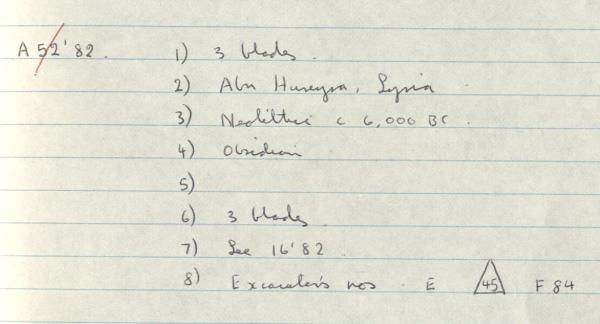 A 52'82. 1) 3 blades.
2) Abu Hureyra, Syria
3) Neolithic c 6,000 BC.
4) Obsidian
5)
6) 3 blades
7) See 16'82
8) Excavator's nos. E 45 F 84